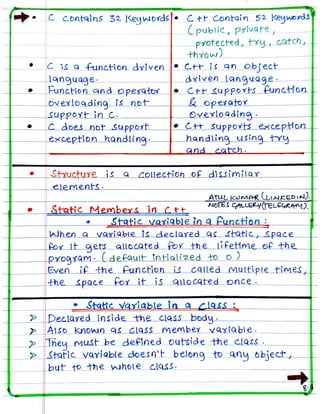 • C contains 32 Keywords
• C++ Contain 52 Keywords
(public, private,
protected, try, catch,
throw)
• C is a function driven
language.
• C++ is an object
driven language.
• Function and operator
overloading is not
support in C.
• C++ supports function
& operator
overloading.
• C does not support
exception handling.
• C++ supports exception
handling using try
and catch.
• Structure is a collection of dissimilar
elements.
ATUL KUMAR (LINKEDIN).
NOTES GALLERY (TELEGRAM).
• Static Members in C++
• Static variable in a Function :
When a variable is declared as static, space
for it gets allocated for the lifetime of the
program. (default intialized to 0)
Even if the function is called multiple times,
the space for it is allocated once.
• Static variable in a class :
Declared inside the class body.
Also known as class member variable.
They must be defined outside the class.
Static variable doesn't belong to any object,
but to the whole class.